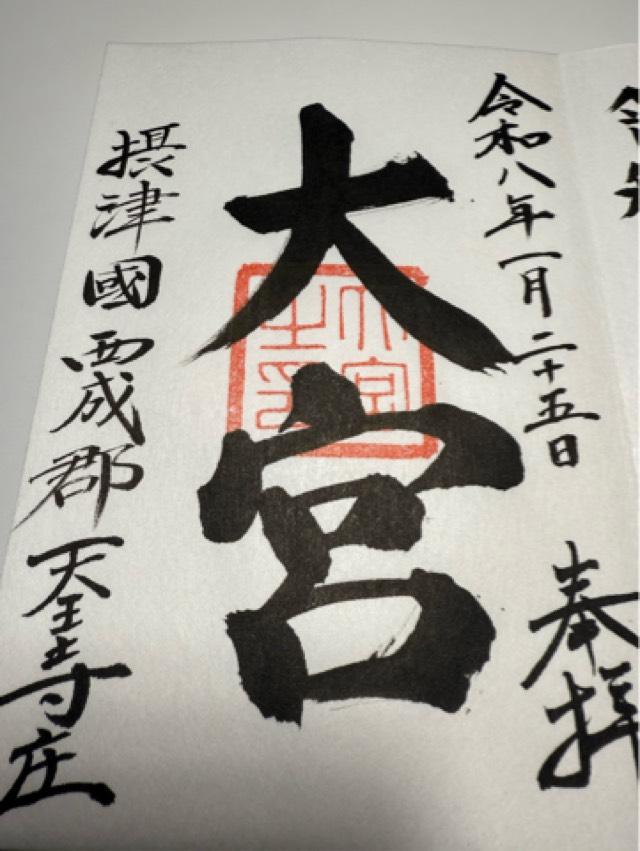 奉拝
令和八年一月二十五日
大宮
大宮之印
摂津國西成郡天王寺庄